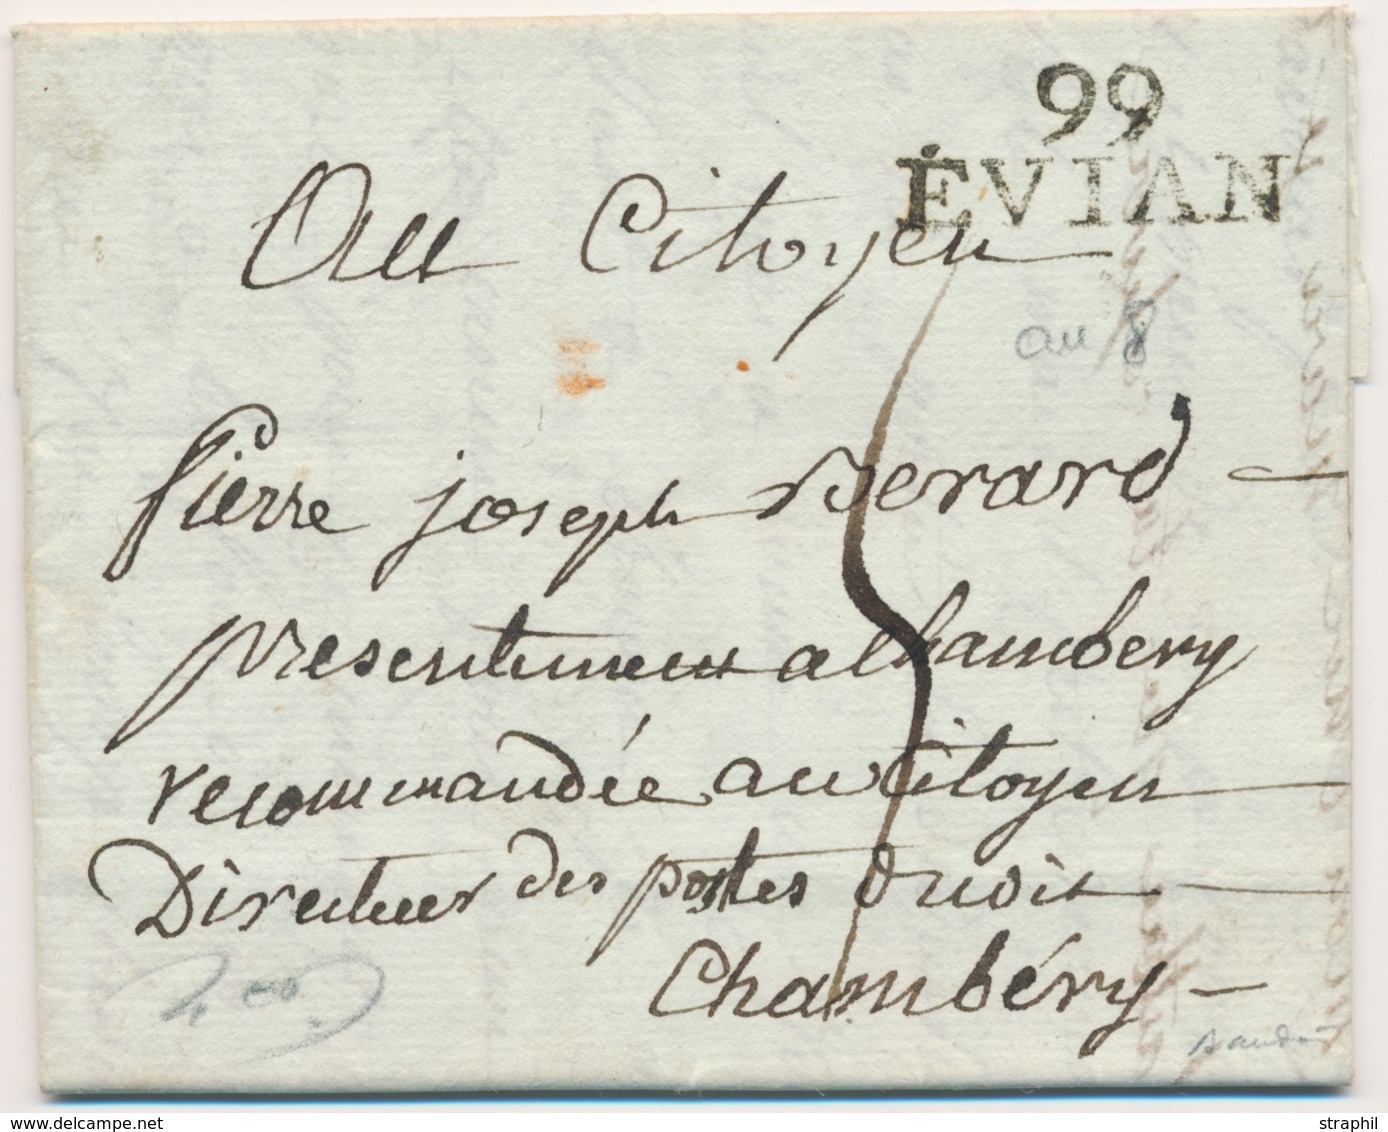 99
ÉVIAN
Au Citoyen
an 8
pierre joseph Berard
presentement a Chambery
recommandée au Citoyen
Directeur des postes dudit
Chambéry
www.delcampe.net
straphil